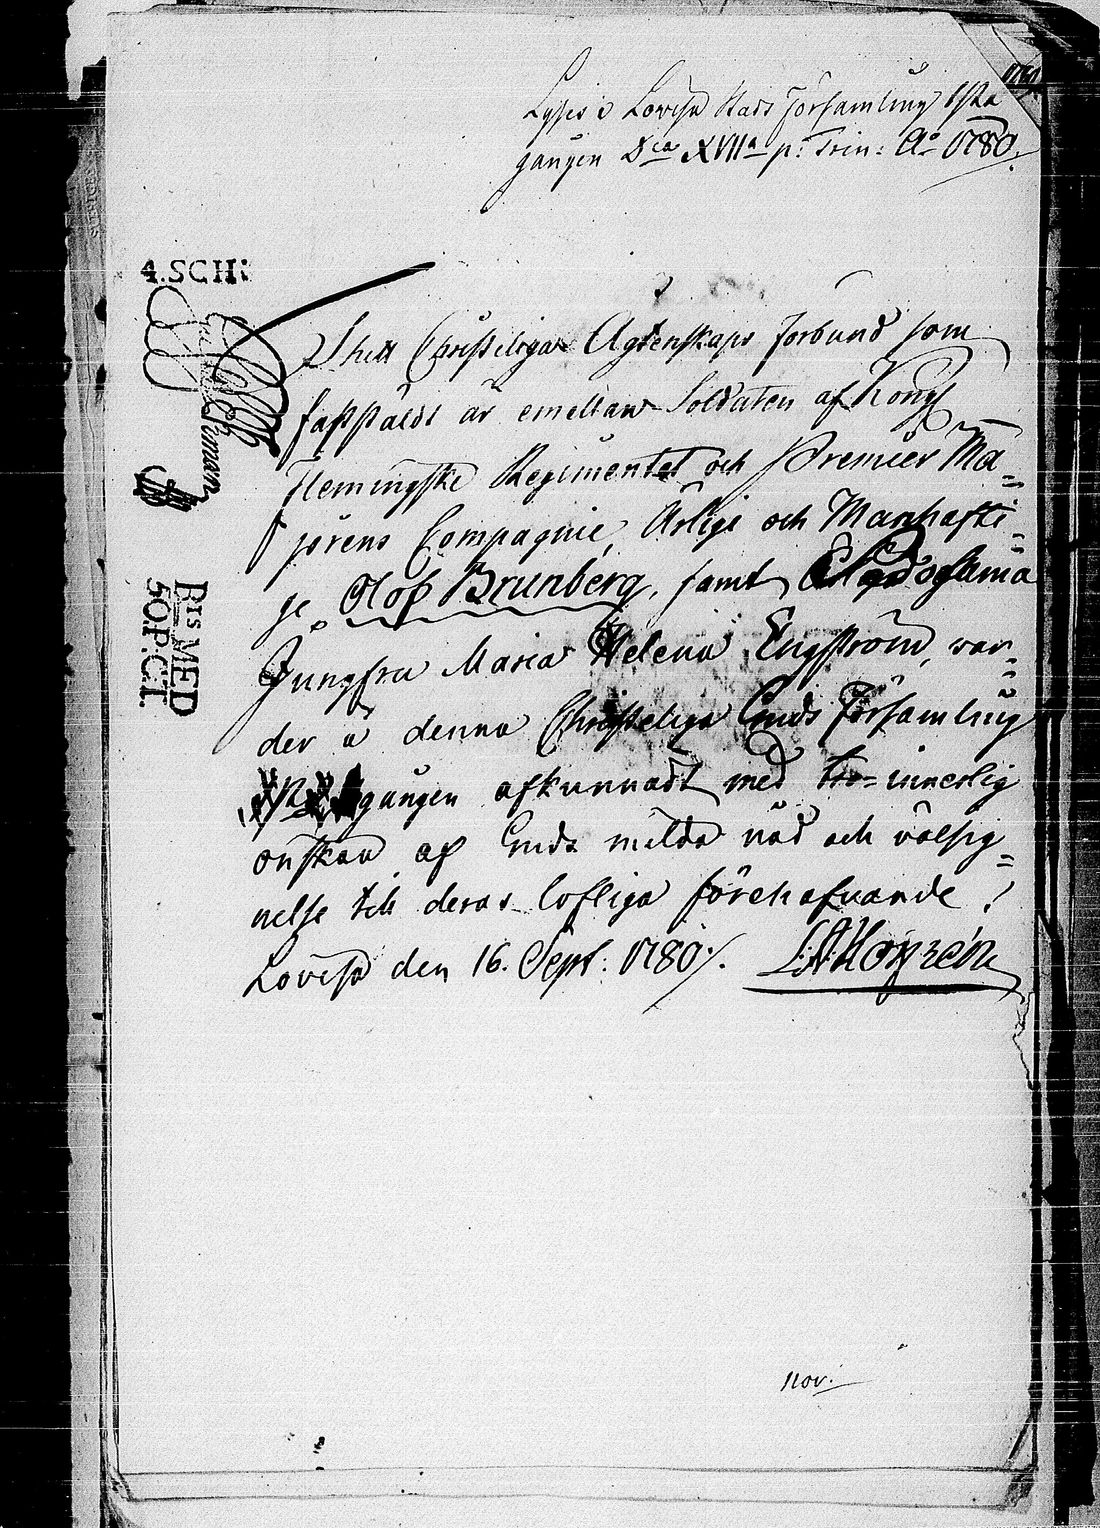 Lyses i Lovisa Stads Församling 1sta
gången D:ca XVII:a p: Trin: A:o 1780.
4.SCH:
Ehrman
BTS MED
50.P:CT.
Thett Christeliga Ägtenskaps förbund som
fastställdt är emellan Soldaten af Kongl
Flemingske Regimentet och Premier Ma-
jorens Compagnie, Ärlige och Manhafti-
ge Olof Brunberg, samt Dygdesamma
Jungfru Maria Helena Engström, war-
der i denna Christeliga Guds Församling
gången afkunnadt med tro-innerlig
önskan af Guds milda nåd och välsig-
nelse till deras lofliga förehafvande!
Lovisa den 16. Sept: 1780/.
nov: